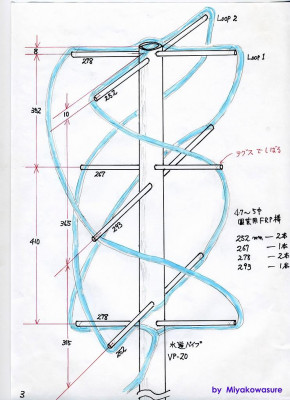 Loop 2
Loop 1
8
278
252
10
テグスでしばる
267
365
園芸用FRP棒
252 mm — 2本
267 — 1本
278 — 2本
293 — 1本
293
410
278
252
水道パイプ
VP-20
3
by Miyakowasure